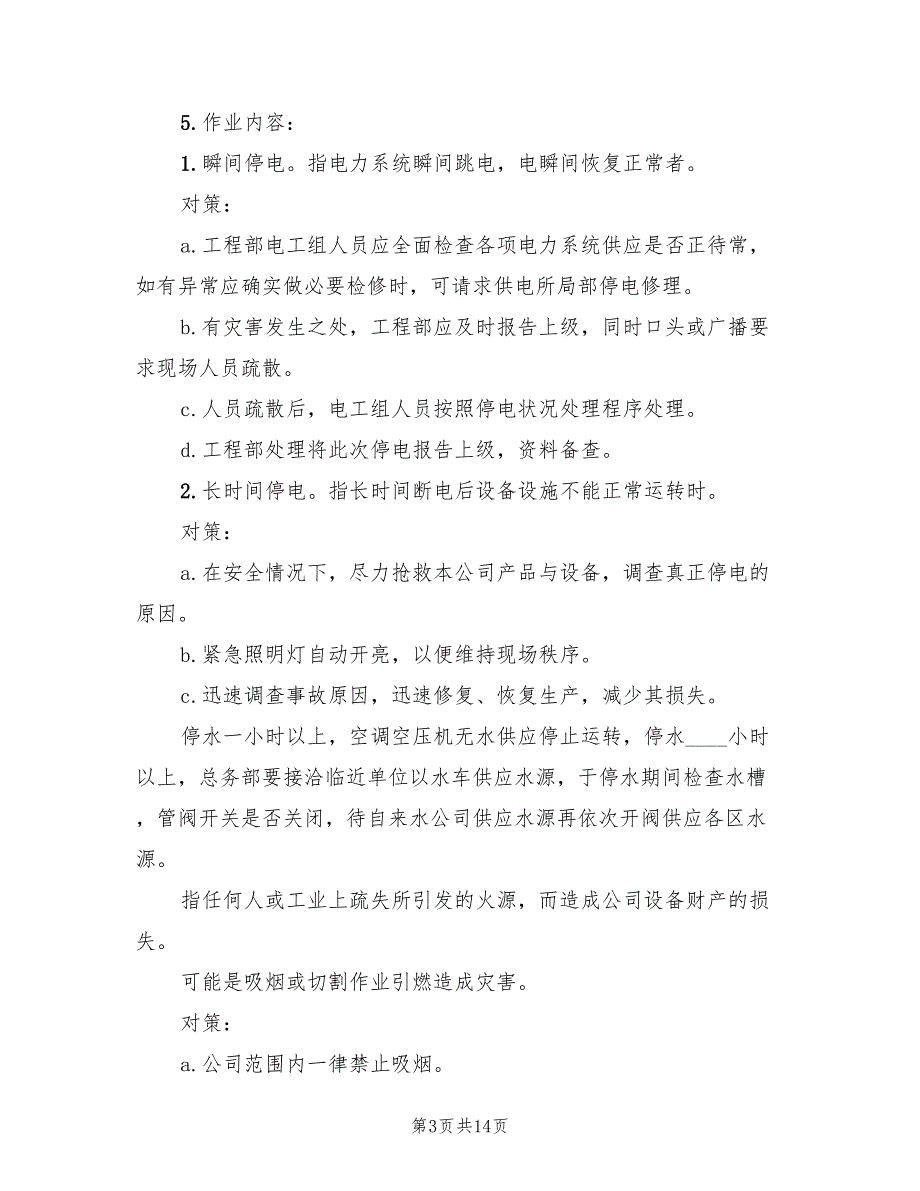 5.作业内容：
1.瞬间停电。指电力系统瞬间跳电，电瞬间恢复正常者。
对策：
a.工程部电工组人员应全面检查各项电力系统供应是否正待常，
如有异常应确实做必要检修时，可请求供电所局部停电修理。
b.有灾害发生之处，工程部应及时报告上级，同时口头或广播要
求现场人员疏散。
c.人员疏散后，电工组人员按照停电状况处理程序处理。
d.工程部处理将此次停电报告上级，资料备查。
2.长时间停电。指长时间断电后设备设施不能正常运转时。
对策：
a.在安全情况下，尽力抢救本公司产品与设备，调查真正停电的
原因。
b.紧急照明灯自动开亮，以便维持现场秩序。
c.迅速调查事故原因，迅速修复、恢复生产，减少其损失。
停水一小时以上，空调空压机无水供应停止运转，停水____小时
以上，总务部要接洽临近单位以水车供应水源，于停水期间检查水槽
，管阀开关是否关闭，待自来水公司供应水源再依次开阀供应各区水
源。
指任何人或工业上疏失所引发的火源，而造成公司设备财产的损
失。
可能是吸烟或切割作业引燃造成灾害。
对策：
a.公司范围内一律禁止吸烟。
第3页共14页